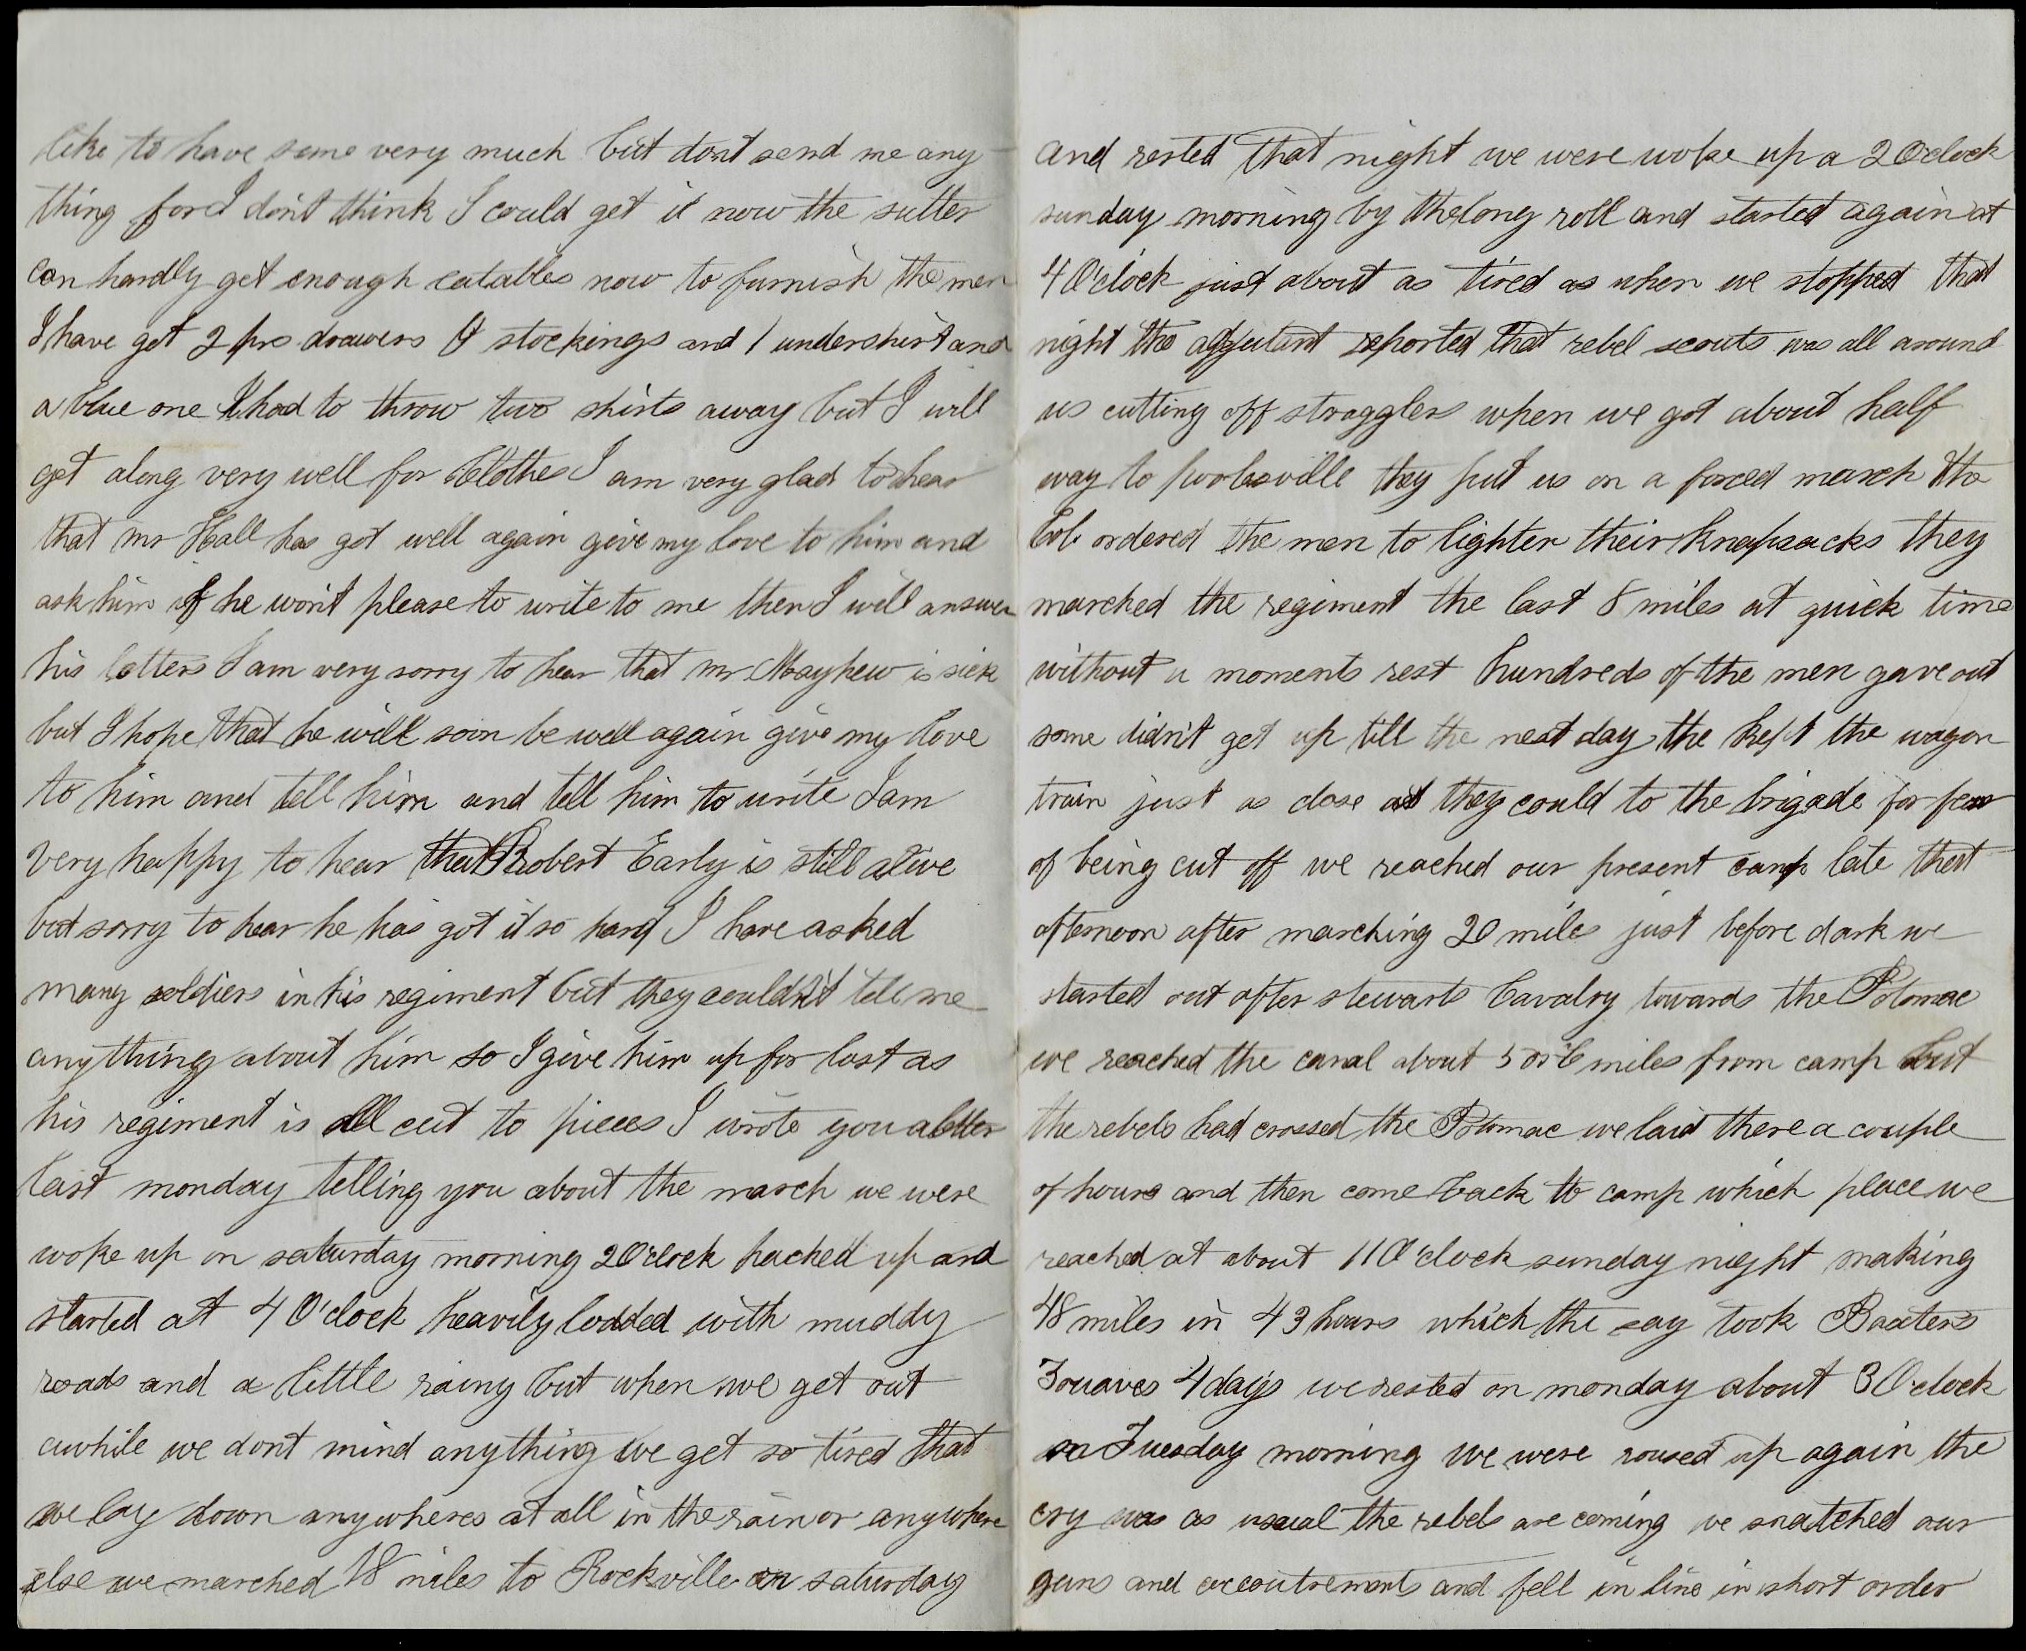 like to have some very much but dont send me any
thing for I don't think I could get it now the sutler
can hardly get enough eatables now to furnish the men
I have got 2 prs drawers & stockings and 1 undershirt and
a blue one I had to throw two shirts away but I will
get along very well for Clothes I am very glad to hear
that mr Hall has got well again give my love to him and
ask him if he won't please to write to me then I will answer
his letters I am very sorry to hear that mr Mayhew is sick
but I hope that he will soon be well again give my love
to him and tell him and tell him to write I am
very happy to hear that Robert Early is still alive
but sorry to hear he has got it so hard I have asked
many soldiers in his regiment but they couldn't tell me
anything about him so I give him up for lost as
his regiment is all cut to pieces I wrote you a letter
last monday telling you about the march we were
woke up on saturday morning 2 O'clock packed up and
started at 4 O'clock heavily lodded with muddy
roads and a little rainy but when we get out
awhile we dont mind anything we get so tired that
we lay down anywheres at all in the rain or anywhere
else we marched 18 miles to Rockville on saturday
and rested that night we were woke up a 2 O'clock
sunday morning by the long roll and started again at
4 O'clock just about as tired as when we stopped that
night the adjutant reported that rebel scouts was all around
us cutting off stragglers when we got about half
way to poolesville they put us on a forced march the
Col. ordered the men to lighten their knapsacks they
marched the regiment the last 8 miles at quick time
without a moments rest hundreds of the men gave out
some didn't get up till the next day the kept the wagon
train just as close as they could to the brigade for fear
of being cut off we reached our present camp late that
afternoon after marching 20 miles just before dark we
started out after stewarts Cavalry towards the Potomac
we reached the canal about 5 or 6 miles from camp but
the rebels had crossed the Potomac we laid there a couple
of hours and then come back to camp which place we
reached at about 11 O'clock sunday night making
48 miles in 43 hours which the say took Baxters
Zouaves 4 days we rested on monday about 3 O'clock
on Tuesday morning we were roused up again the
cry was as usual the rebels are coming we snatched our
guns and accoutrements and fell in line in short order